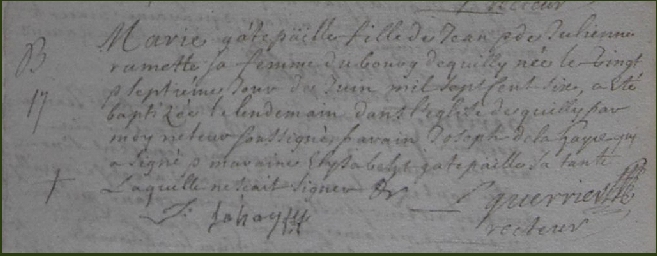 recteur
B
17
Marie gatepaille fille de Jean & de Julienne
ramette sa femme du bourg de quilly née le vingt
& septieme jour de Juin mil sept sent six, a été
baptizée le lendemain dans l'eglise de quilly par
moy recteur soussigné, parain Joseph de la haye qui
a signé & maraine Elysabeht gatepaille sa tante
Laquelle ne scait signer &c
J: lahaye
P guerrier
recteur